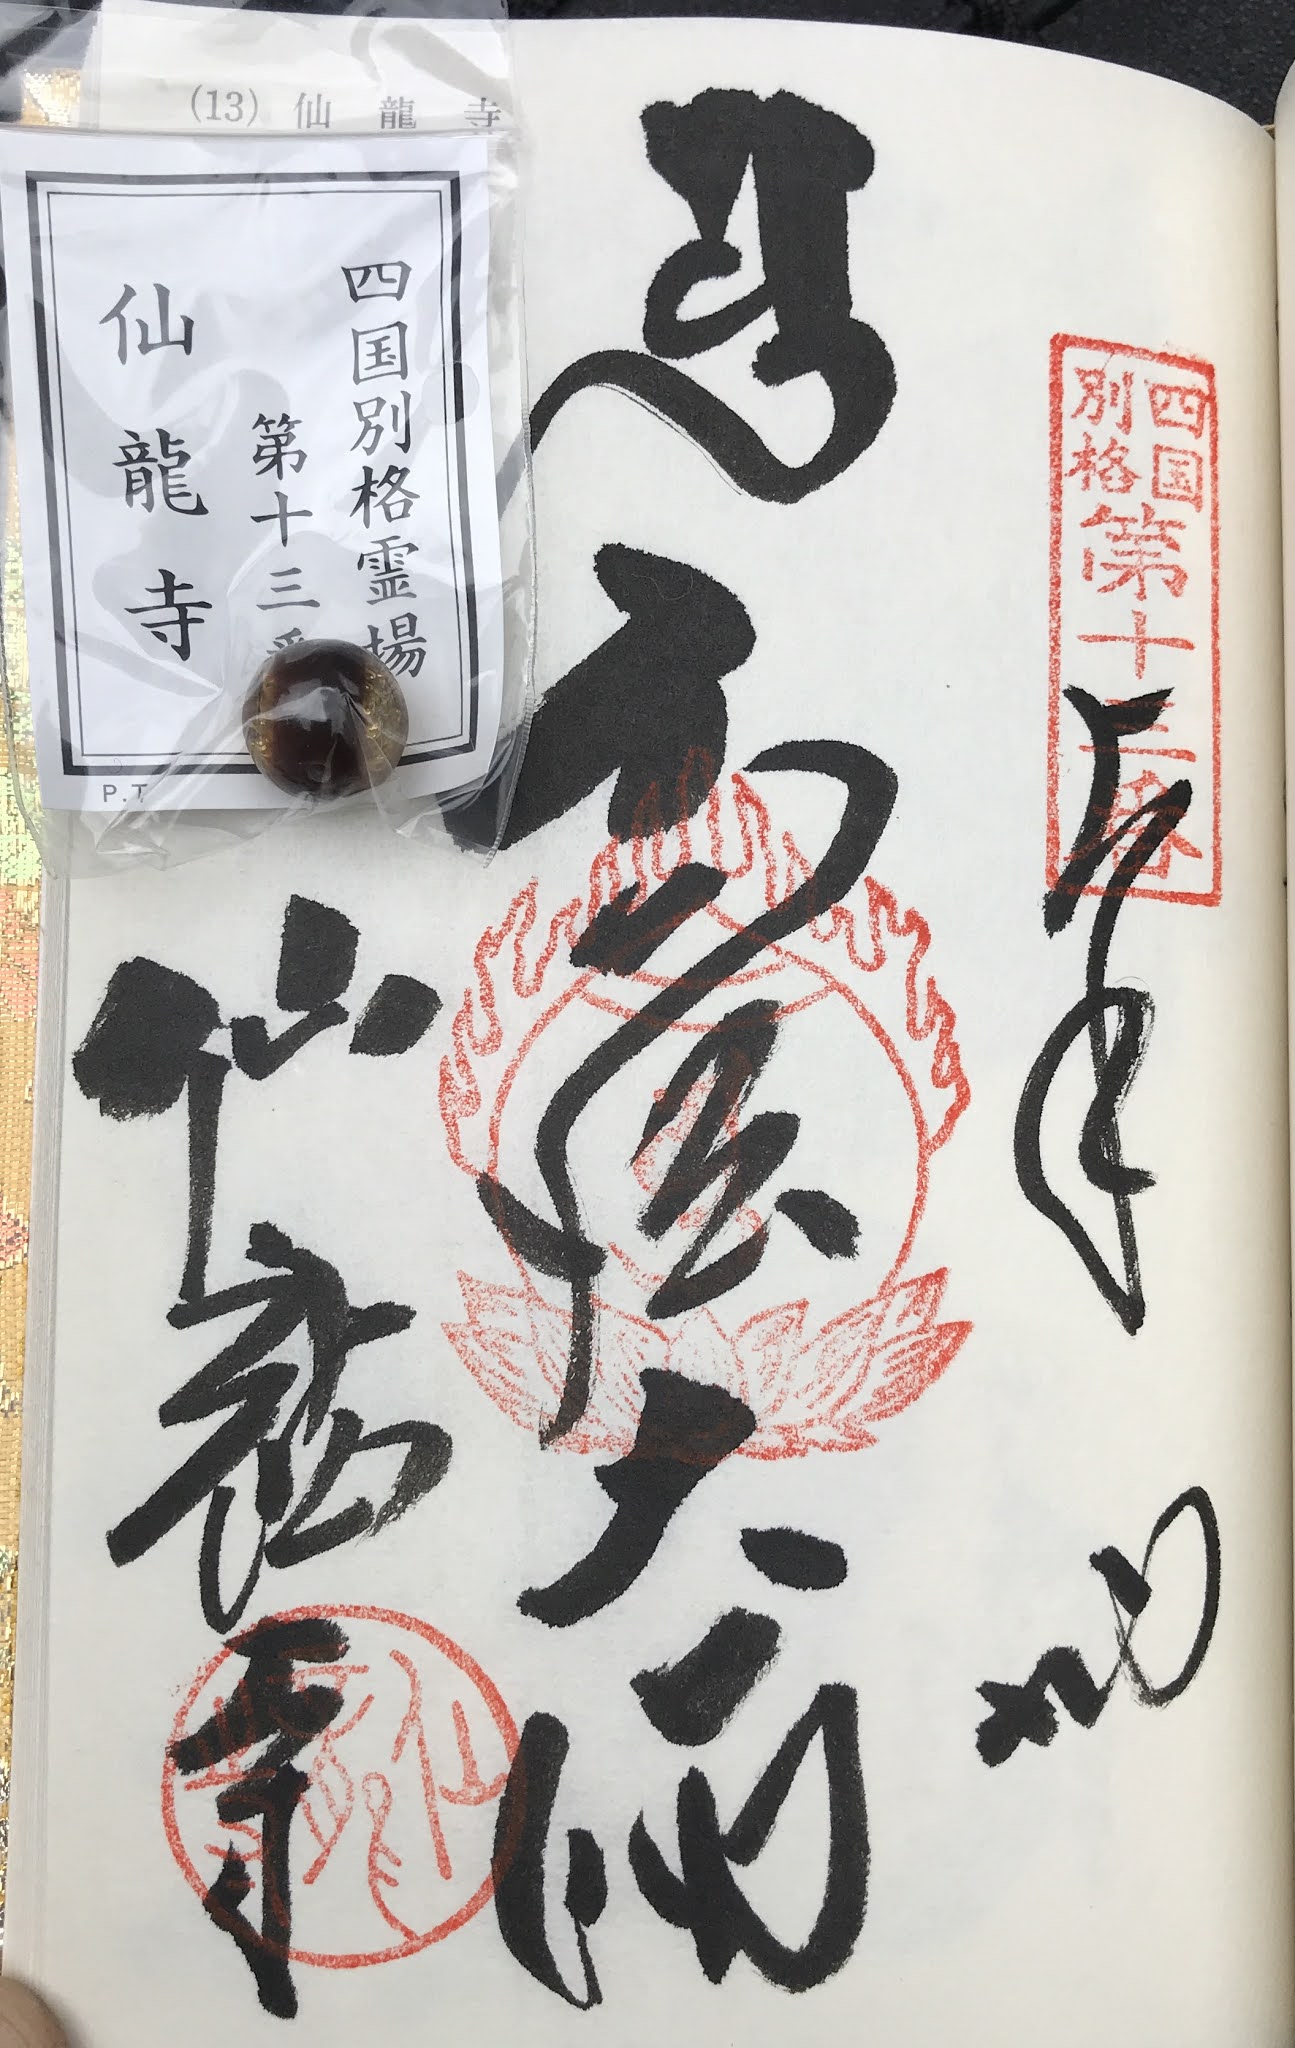 (13) 仙龍寺
四国別格霊場
第十三
仙龍寺
P.T
四国
別格
第十三番
奉拝
弘法大師
仙龍寺
仙龍寺